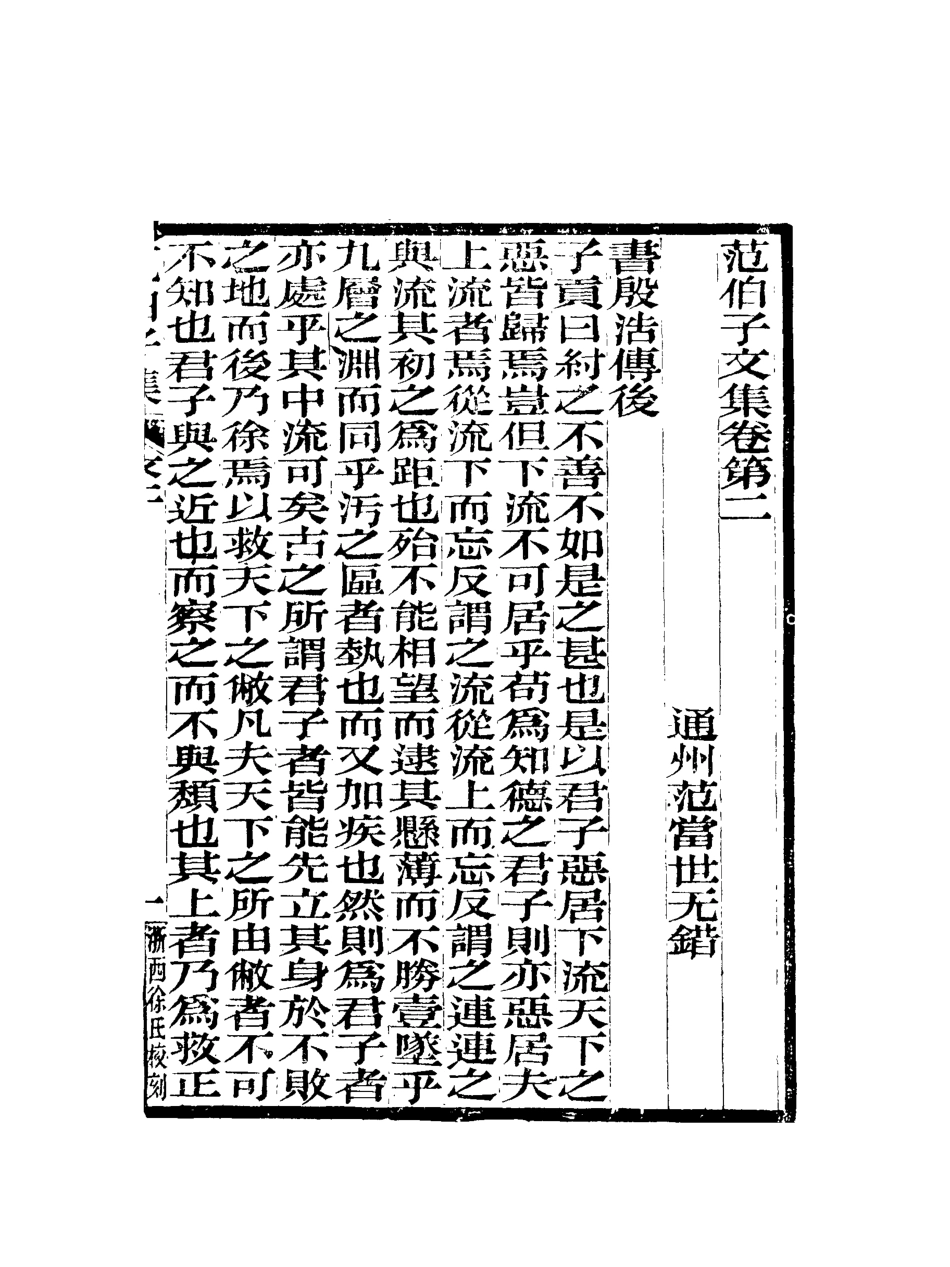 范伯子文集卷第二
通州范當世无錯
書殷浩傳後
子貢曰紂之不善不如是之甚也是以君子惡居下流天下之
惡皆歸焉豈但下流不可居乎苟爲知德之君子則亦惡居夫
上流者焉從流下而忘反謂之流從流上而忘反謂之連連之
與流其初之爲距也殆不能相望而逮其懸薄而不勝壹墜乎
九層之淵而同乎汚之區者埶也而又加疾也然則爲君子者
亦處乎其中流可矣古之所謂君子者皆能先立其身於不敗
之地而後乃徐焉以救天下之敝凡夫天下之所由敝者不可
不知也君子與之近也而察之而不與頹也其上者乃爲救正
集 文二 一 浙西徐氏校刻